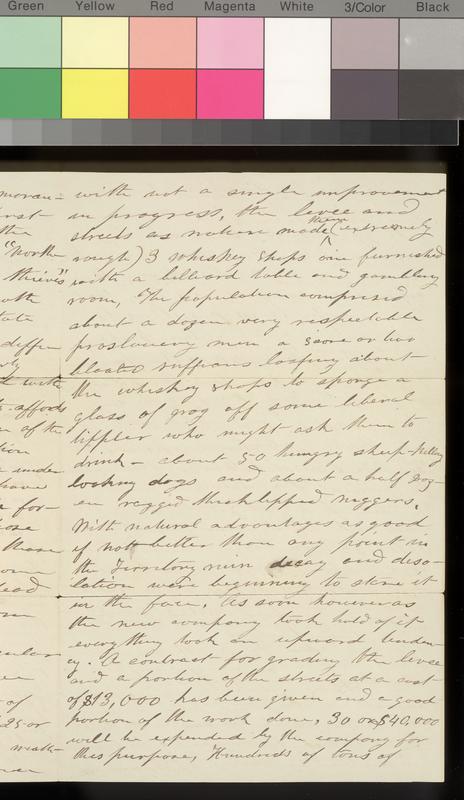 Green Yellow Red Magenta White 3/Color Black
with not a single improvement
in progress, the levee and
streets as nature made them (extremely
rough) 3 whiskey shops one furnished
with a billiard table and gambling
room, The population comprised
about a dozen very respectable
proslavery men a score or two
bloated ruffians loafing about
the whiskey shops to sponge a
glass of grog off some liberal
tippler who might ask them to
drink - about 50 hungry sheep-killing
looking dogs and about a half doz-
en ragged thicklipped niggers.
With natural advantages as good
if not better than any point in
the Territory ruin decay and deso-
lation were beginning to stare it
in the face. As soon however as
the new company took hold of it
everything took an upward tenden-
cy. A contract for grading the levee
and a portion of the streets at a cost
of $13,000 has been given and a good
portion of the work done, 30 or $40,000
will be expended by the company for
this purpose, Hundreds of tons of
"North
thieves"
with
afford
of the
under
have
for-
those
these
lead
of
25 or